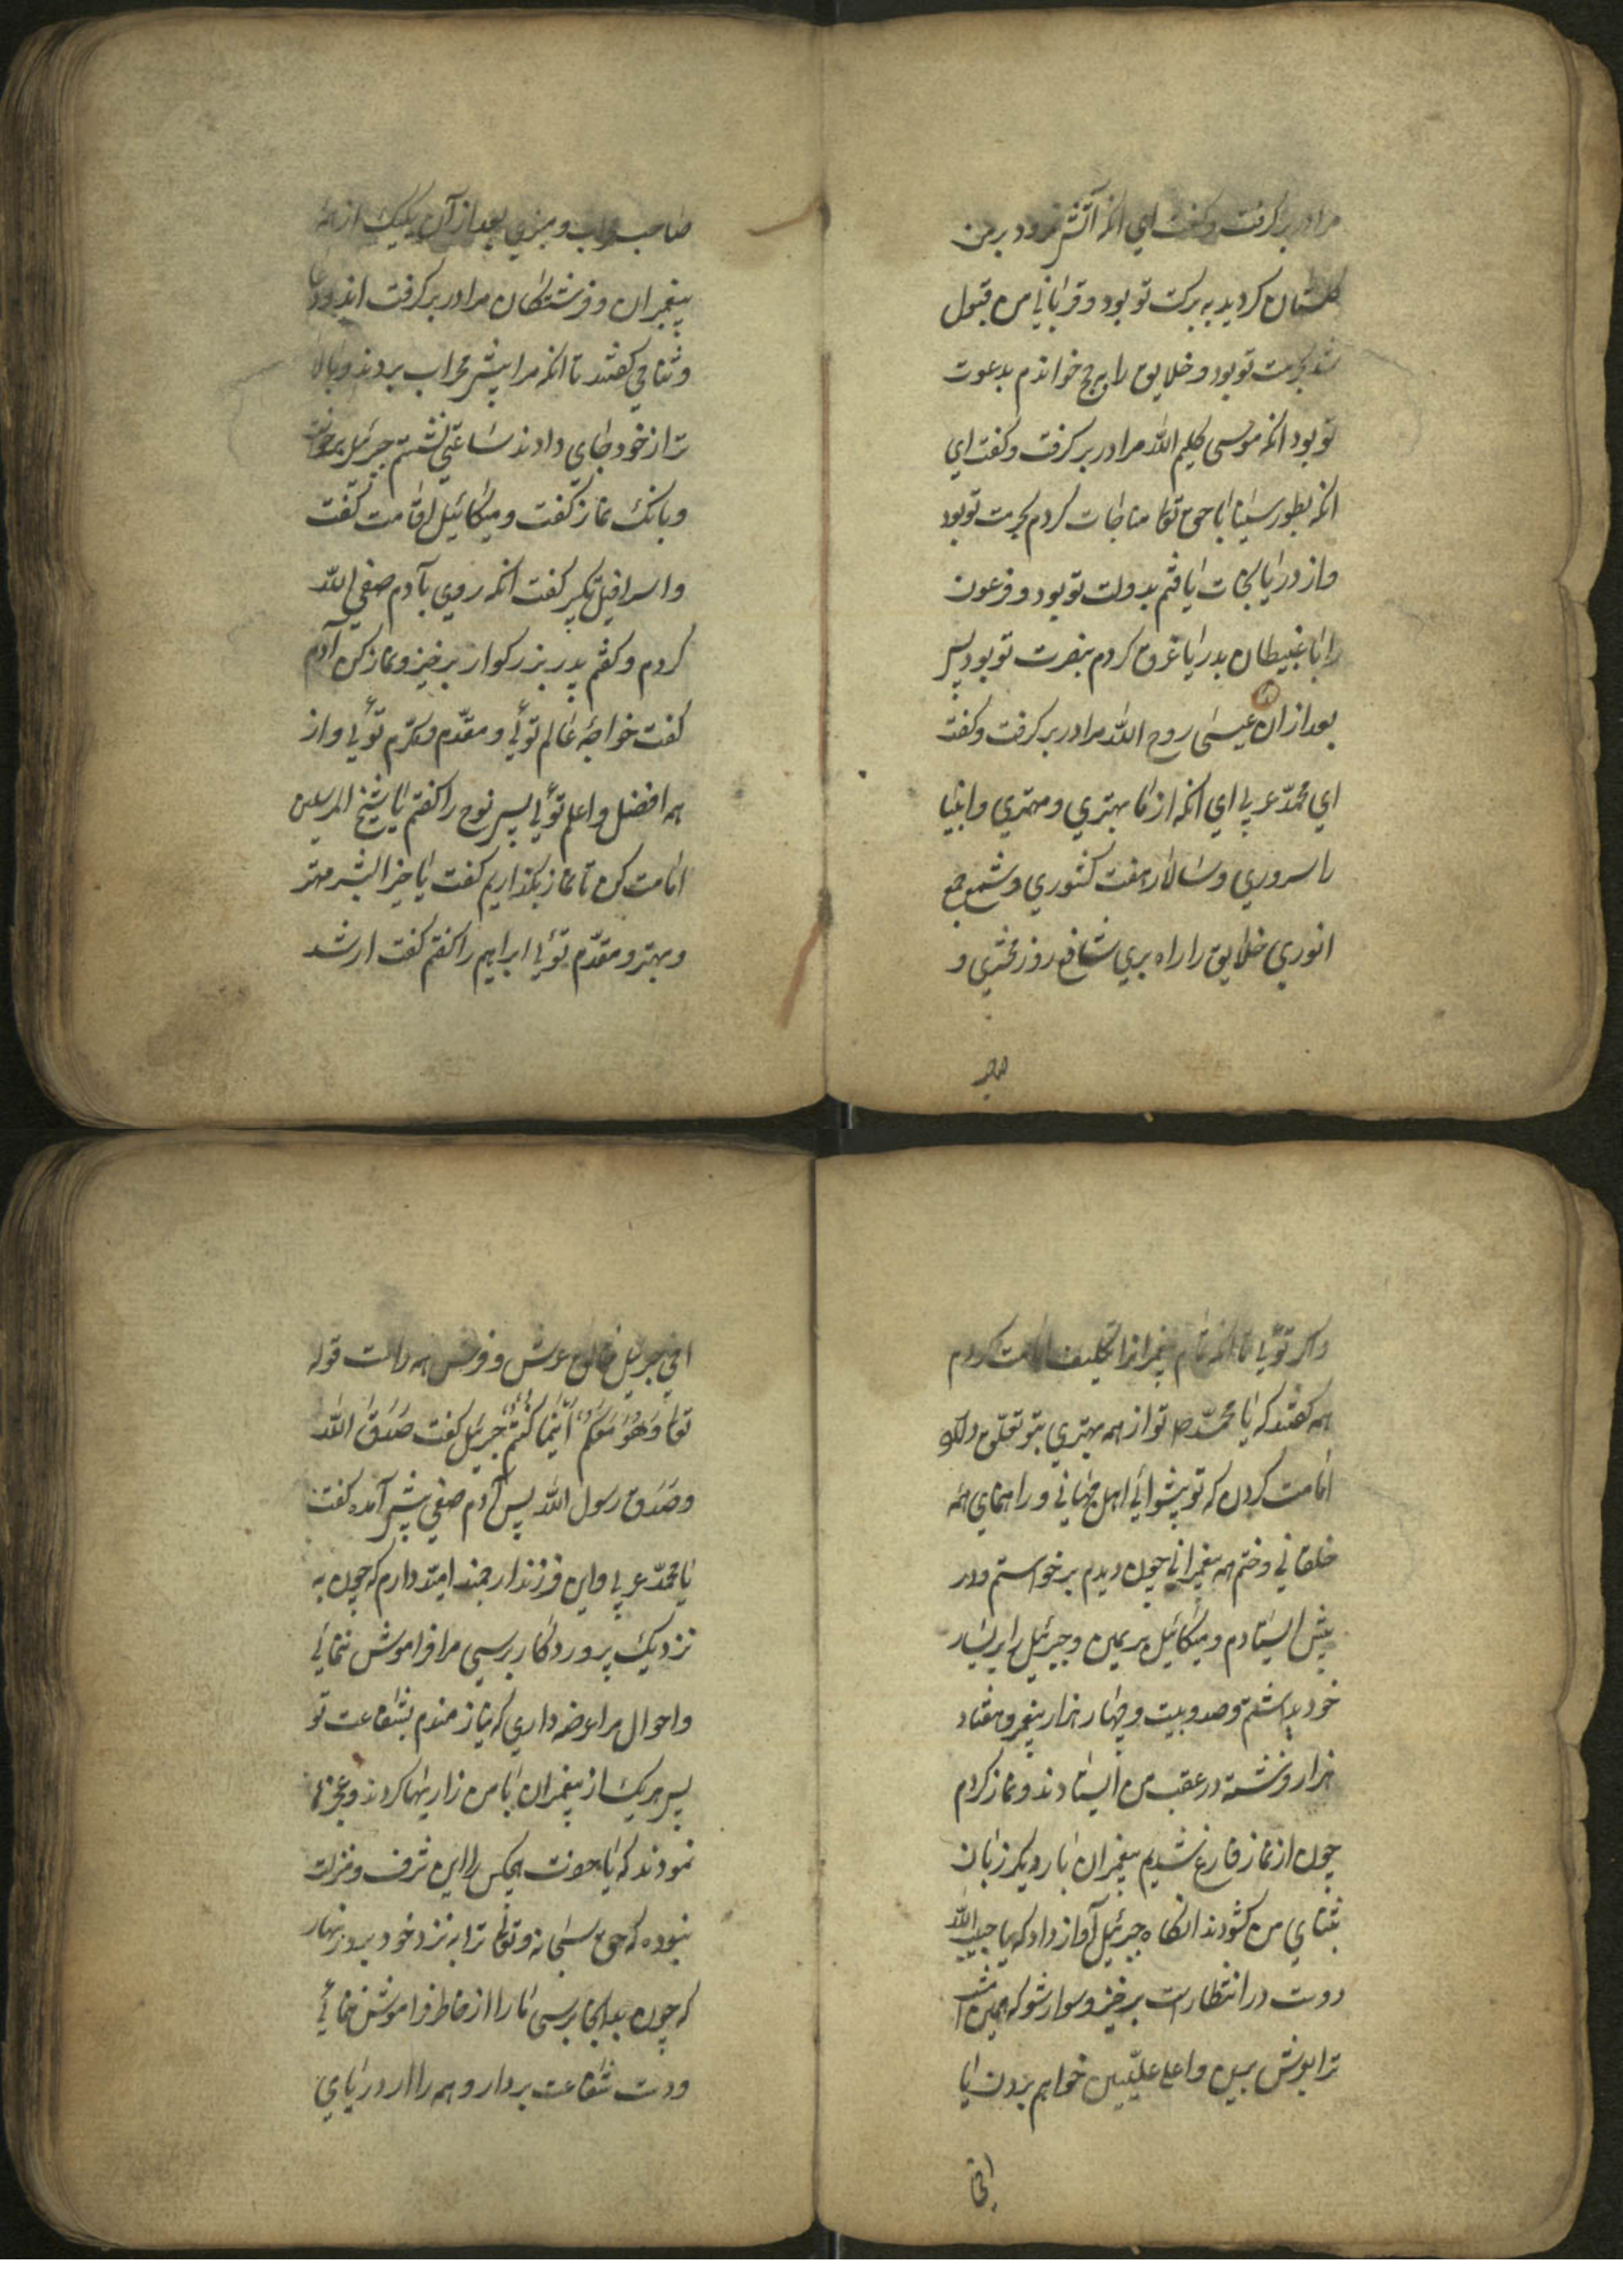 مرا در بر گرفت و گفت ای انکه آتش نمرود بر من
گلستان کردید به برکت تو بود و قربانی من قبول
شد بحرمت تو بود و خلایق را به حج خواندم بدعوت
تو بود انکه موسی کلیم الله مرا در بر کرفت و کفت ای
انکه بطور سینا با حق تعا مناجات کردم بحرمت تو بود
و از دریا نجات یافتم بدولت تو بود و فرعون
را با غبیطان بدریا غرق کردم بنصرت تو بود پس
بعد از ان عیسی روح الله مرا در بر کرفت و کفت
ای محمّد عربی ای انکه از ما بهتری و مهتری و انبیا
را سروری و سالار هفت کشوری و شمع جمع
انوری خلایق را راه بری شافع روز محشری و
صاحب
صاحب و منبری بعد از آن یکیک از همه
پیغمبران و فرشتکان مرا در بر کرفت اند و دعا
و ثنا می کفتند تا انکه مرا پیش محراب بردند و بالا
تر از خود جای دادند ساعتی نشستم جبرئیل برخواست
و بانک نماز کفت و میکائیل اقامت کفت
و اسرافیل تکبیر کفت انکه روی بآدم صفی الله
کردم و کفتم پدر بزرکوار برخیز و نماز کن آدم
کفت خواجهٔ عالم توئی و مقدّم و مکرّم توئی و از
همه افضل و اعلم توئی پس نوح را کفتم یا شیخ المرسلین
امامت کن تا نماز بکذاریم کفت یا خیر البشر مهتر
و بهتر و مقدّم توئی ابراهیم را کفتم کفت ارشد
و اکبر توئی تا انکه تمام پیغمبرانرا تکلیف امامت کردم
همه کفتند که یا محمّد ص تو از همه بهتری بتو تعلّق دارد
امامت کردن که تو پیشوائی اهل جهانی و راهنمای همه
خلقانی و ختم همه پیغمبرانی چون دیدم برخواستم و در
پیش ایستادم و میکائیل بر یمین و جبرئیل را بر یسار
خود بداشتم و صد و بیست و چهار هزار پیغمبر و هفتاد
هزار فرشته در عقب من ایستادند و نماز کردم
چون از نماز فارغ شدیم پیغمبران بار دیکر زبان
بثنای من کشودند انکاه جبرئیل آواز داد که یا حبیب الله
دوست در انتظار است برخیز و سوار شو که همین امشب
ترا بعرش برین و اعلی علیّین خواهم بردن یا
اخی
اخی جبرئیل خالق عرش و فرش همه راست قوله
تعا وَهُوَ مَعَکُمْ اَیْنَمَا کُنْتُمْ جبرئیل کفت صَدَقَ الله
و صَدَق رسول الله پس آدم صفی پیش آمده کفت
یا محمّد عربی و این فرزند ارجمند امید دارم که چون به
نزدیک پروردکار برسی مرا فراموش ننمائی
و احوال مرا عرضه داری که نیازمندم بشفاعت تو
پس هر یک از پیغمبران با من زاریها کردند و عجزها
نمودند که یا حضرت هیچکس را این شرف و منزلت
نبوده که حق سبحانه و تعا ترا به نزد خود برد زنهار
که چون بدانجا برسی ما را از خاطر فراموش ننمائی
و دست شفاعت بردار و همه را از دریای